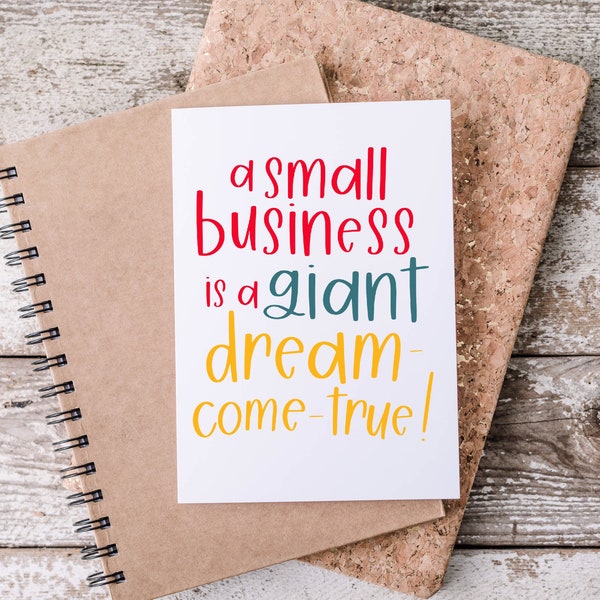 a small
business
is a giant
dream-
come-true!